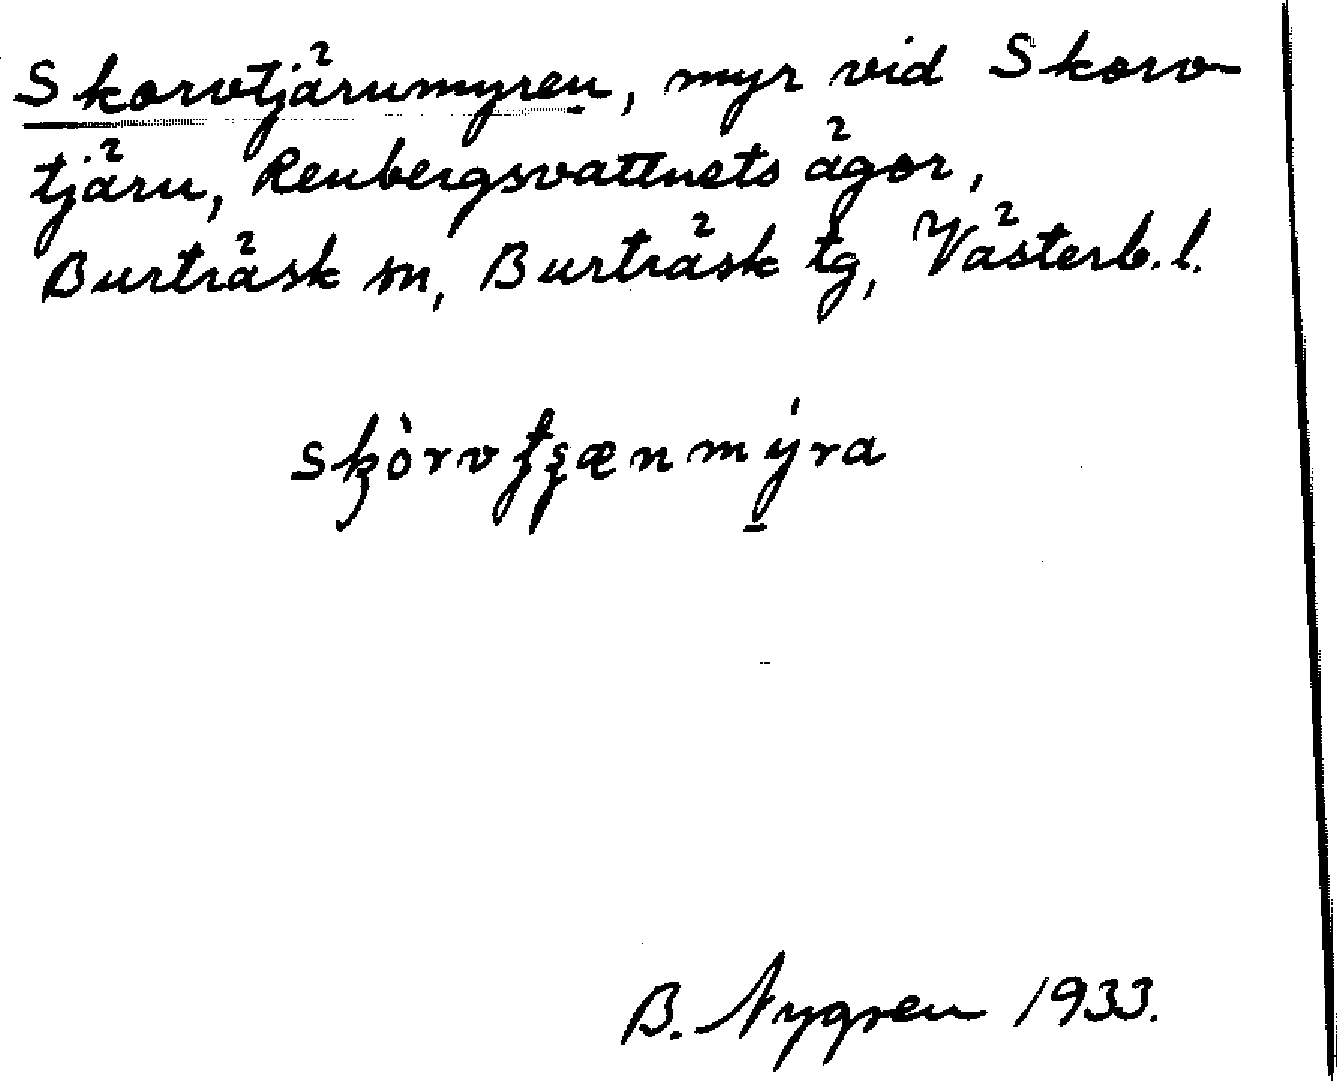 Skorvtjärnmyren, myr vid Skorv-
tjärn, Renbergsvattnets ägor,
Burträsk sn, Burträsk tg, Västerb. l.
B. Nygren 1933.